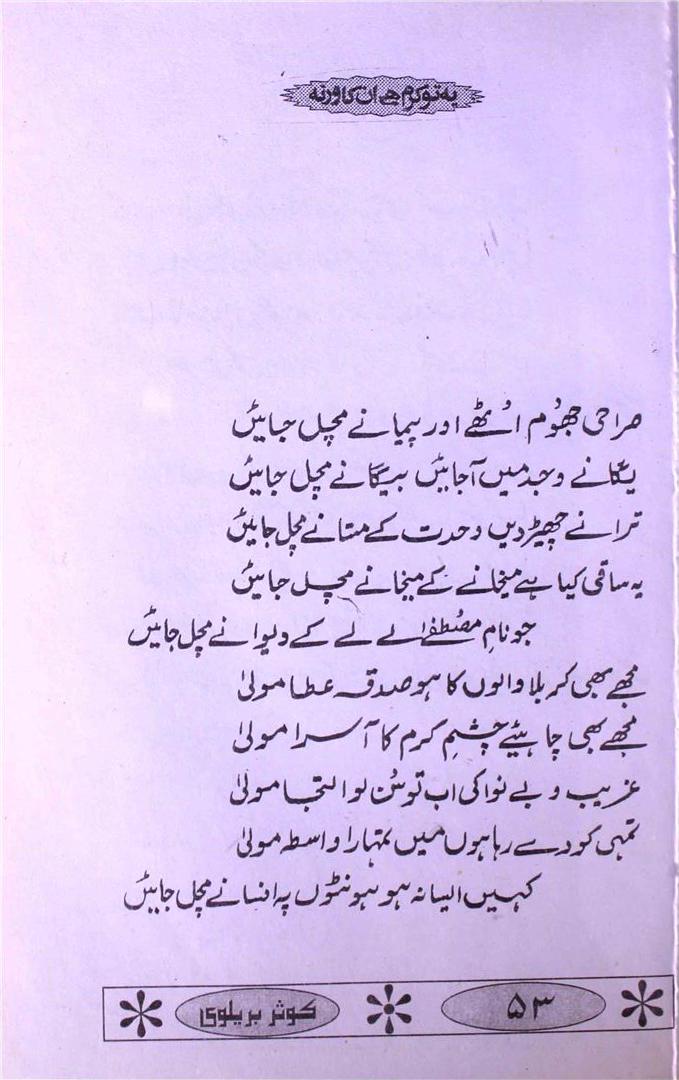 یہ تو کرم ہے ان کا ورنہ
صراحی جھُوم اُٹھے اور پیمانے مچل جائیں
یگانے وجد میں آجائیں بیگانے مچل جائیں
ترانے چھیڑ دیں وحدت کے مستانے مچل جائیں
یہ ساقی کیا ہے میخانے کے میخانے مچل جائیں
جو نامِ مصُطفےٰ لے لے کے دیوانے مچل جائیں
مجھے بھی کربلا والوں کا ہو صدقہ عطا مولیٰ
مجھے بھی چاہئیے چشمِ کرم کا آسرا مولیٰ
غریب و بے نوا کی اب تو سُن لو التجا مولیٰ
تمہی کو دے رہا ہوں میں تمہارا واسطہ مولیٰ
کہیں ایسا نہ ہو ہونٹوں پہ افسانے مچل جائیں
۵۳
کوثر بریلوی